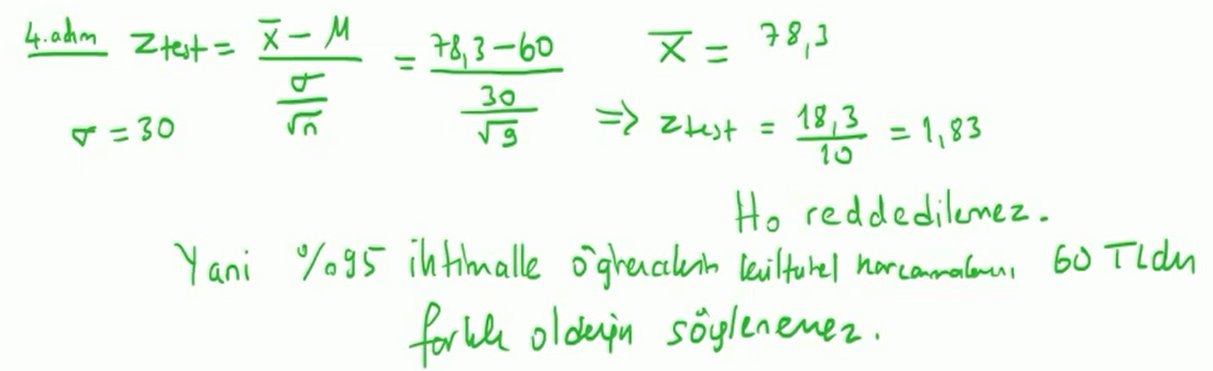 4. adım Ztest = (x̄ − M) / (σ / √n) = (78,3 − 60) / (30 / √9) x̄ = 78,3
σ = 30 ⇒ Ztest = 18,3 / 10 = 1,83
H₀ reddedilemez.
Yani %95 ihtimalle öğrencilerin kültürel harcamalarını 60 TLden
farklı olduğun söylenemez.